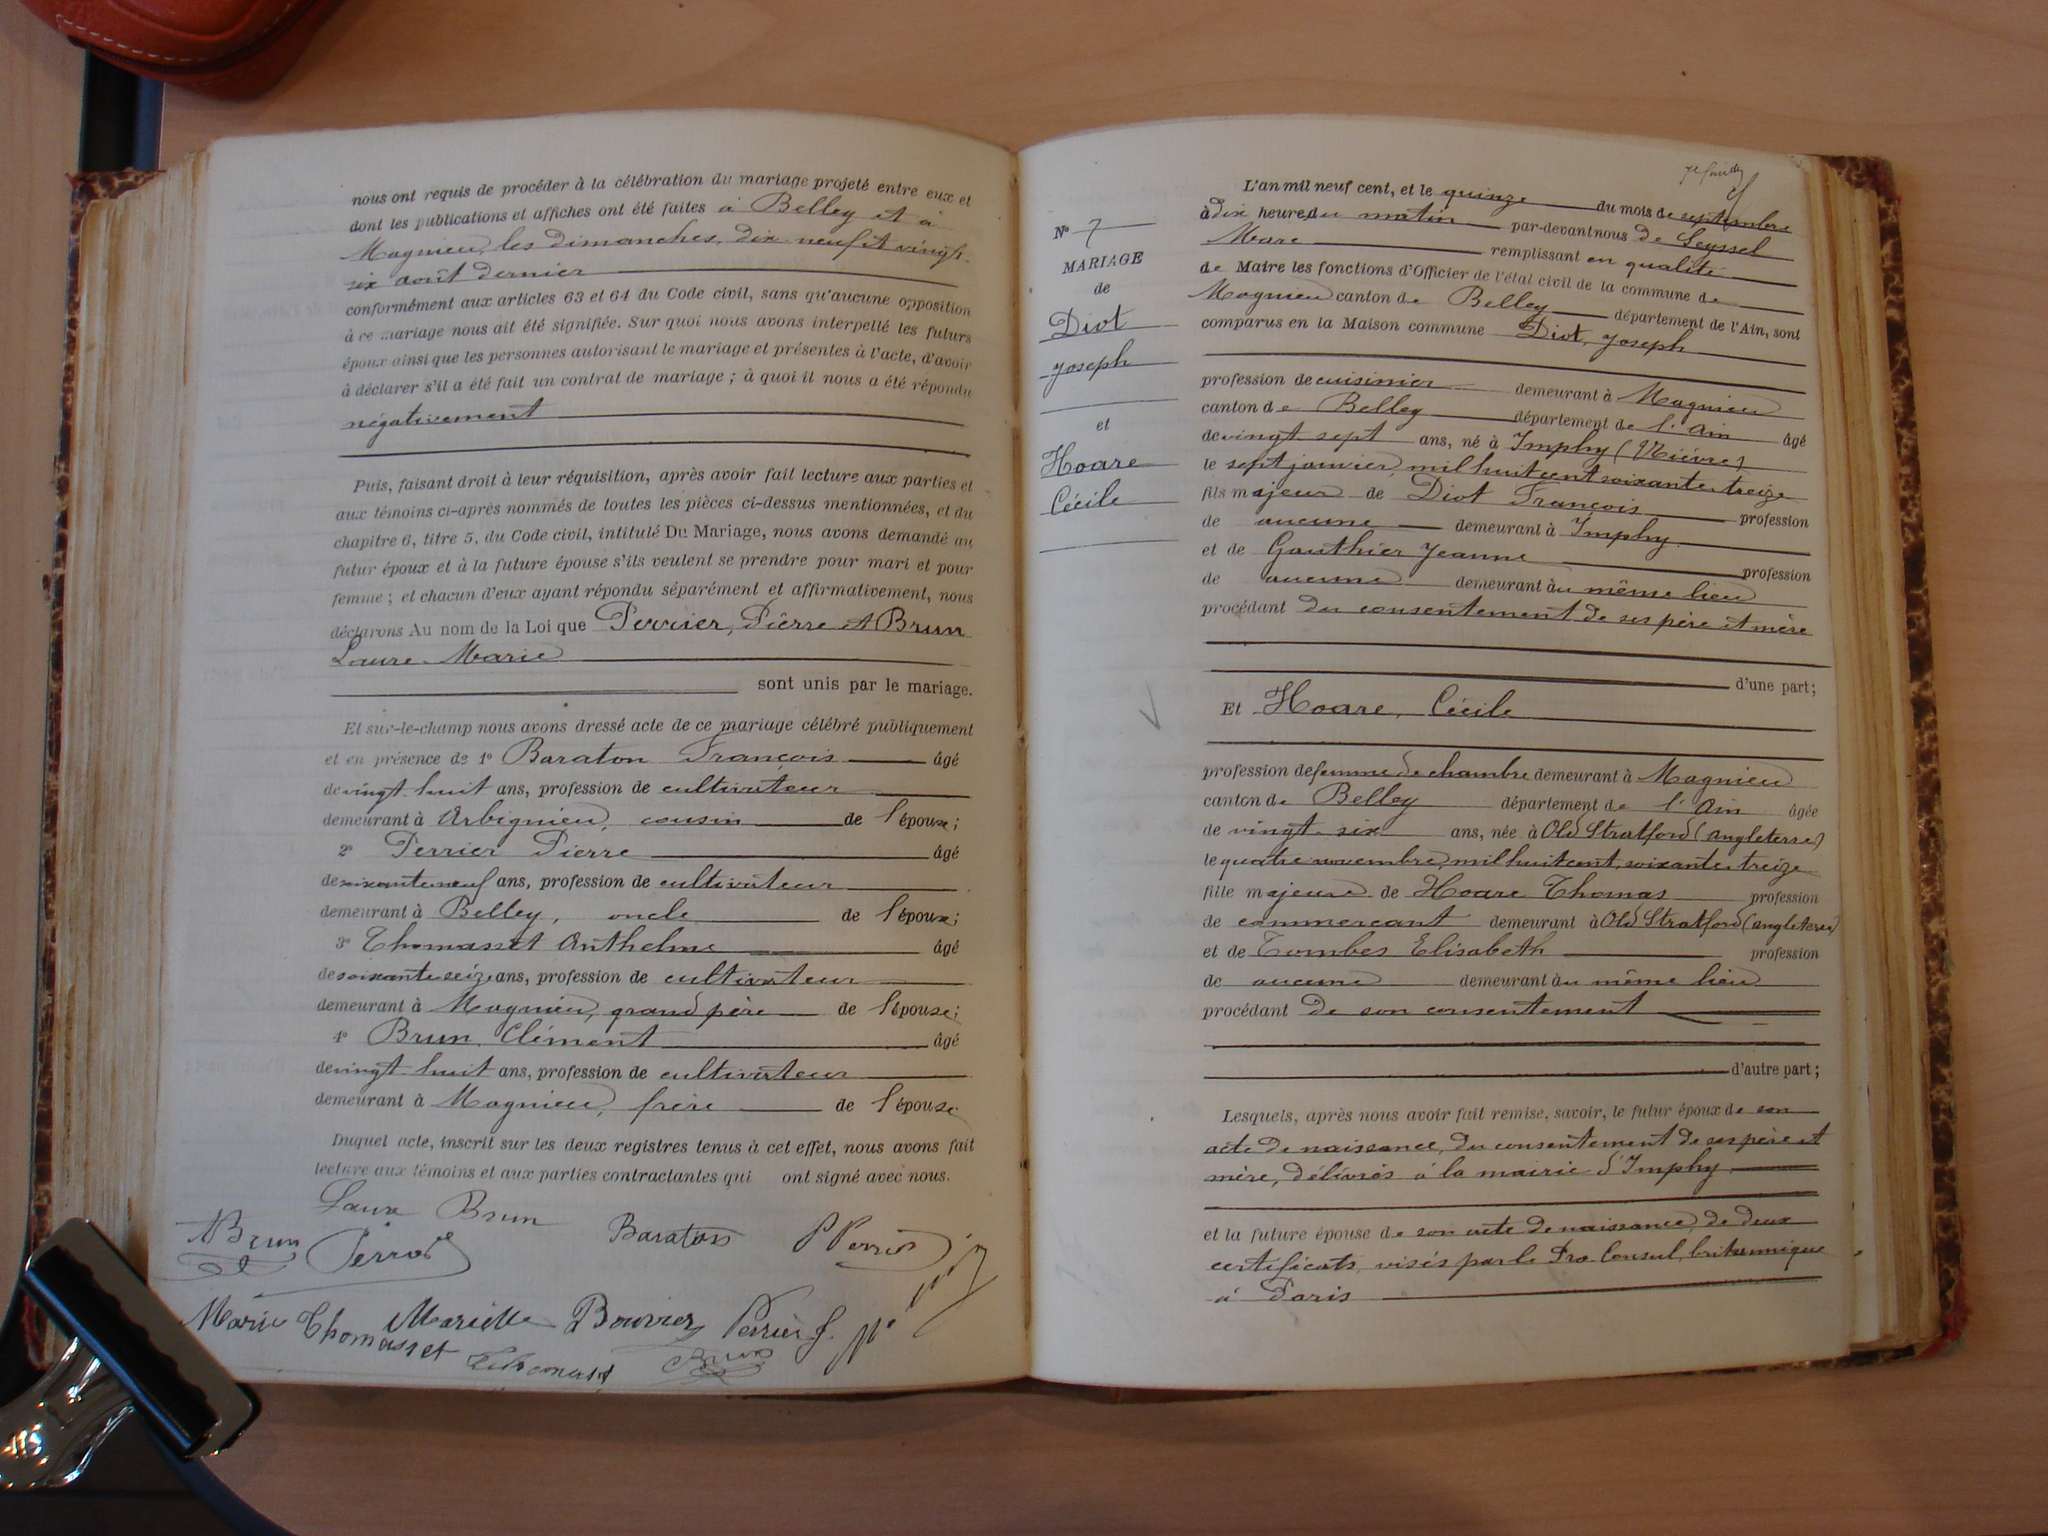 nous ont requis de procéder à la célébration du mariage projeté entre eux et
dont les publications et affiches ont été faites à Belley et à
Magnieu, les dimanches, dix neuf et vingt-
six août dernier
conformément aux articles 63 et 64 du Code civil, sans qu'aucune opposition
à ce mariage nous ait été signifiée. Sur quoi nous avons interpellé les futurs
époux ainsi que les personnes autorisant le mariage et présentes à l'acte, d'avoir
à déclarer s'il a été fait un contrat de mariage ; à quoi il nous a été répondu
négativement
Puis, faisant droit à leur réquisition, après avoir fait lecture aux parties et
aux témoins ci-après nommés de toutes les pièces ci-dessus mentionnées, et du
chapitre 6, titre 5, du Code civil, intitulé Du Mariage, nous avons demandé au
futur époux et à la future épouse s'ils veulent se prendre pour mari et pour
femme ; et chacun d'eux ayant répondu séparément et affirmativement, nous
déclarons Au nom de la Loi que Perrier, Pierre et Brun
Laure Marie
sont unis par le mariage.
Et sur-le-champ nous avons dressé acte de ce mariage célébré publiquement
et en présence de 1° Baraton François âgé
de vingt huit ans, profession de cultivateur
demeurant à Arbignieu, cousin de l'épouse;
2° Perrier Pierre âgé
de soixante neuf ans, profession de cultivateur
demeurant à Belley, oncle de l'époux;
3° Thomasset Anthelme âgé
de soixante seize ans, profession de cultivateur
demeurant à Magnieu, grand père de l'épouse;
4° Brun Clément âgé
de vingt huit ans, profession de cultivateur
demeurant à Magnieu, frère de l'épouse
Duquel acte, inscrit sur les deux registres tenus à cet effet, nous avons fait
lecture aux témoins et aux parties contractantes qui ont signé avec nous.
Laure Brun
Brun Perrier Baraton P Perrier
Marie Thomasset Mariette Bouvier Perrier J.
Thomasset Brun
N° 7
MARIAGE
de
Diot
Joseph
et
Hoare
Cécile
L'an mil neuf cent, et le quinze du mois de septembre
à dix heures du matin par-devant nous de Seyssel
Marc remplissant en qualité
de Maire les fonctions d'Officier de l'état civil de la commune de
Magnieu canton de Belley département de l'Ain, sont
comparus en la Maison commune Diot, Joseph
profession de cuisinier demeurant à Magnieu
canton de Belley département de l'Ain âgé
de vingt sept ans, né à Imphy (Nièvre)
le sept janvier, mil huit cent soixante treize
fils majeur de Diot François profession
de aucune demeurant à Imphy
et de Gauthier Jeanne profession
de aucune demeurant au même lieu
procédant du consentement de ses père et mère
d'une part;
Et Hoare, Cécile
profession de femme de chambre demeurant à Magnieu
canton de Belley département de l'Ain âgée
de vingt six ans, née à Old Stratford (Angleterre)
le quatre novembre, mil huit cent, soixante treize
fille majeure de Hoare Thomas profession
de commerçant demeurant à Old Stratford (Angleterre)
et de Tombes Elisabeth profession
de aucune demeurant au même lieu
procédant de son consentement
d'autre part;
Lesquels, après nous avoir fait remise, savoir, le futur époux de son
acte de naissance, du consentement de ses père et
mère, délivrés à la mairie d'Imphy
et la future épouse de son acte de naissance, de deux
certificats, visés par le Pro-Consul, britannique
à Paris